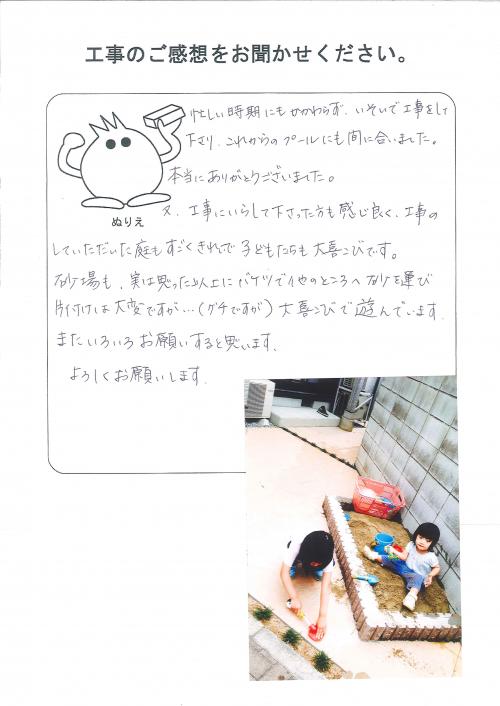 工事のご感想をお聞かせください。
忙しい時期にもかかわらず、いそいで工事をして
下さり、これからのプールにも間に合いました。
本当にありがとうございました。
ぬりえ
又、工事にいらして下さった方も感じ良く、工事の
していただいた庭もすごくきれいで子どもたちも大喜こびです。
砂場も、実は思った以上にバケツで他のところへ砂を運び
片付けは大変ですが…(グチですが)大喜こびで遊んでいます。
またいろいろお願いすると思います。
よろしくお願いします。